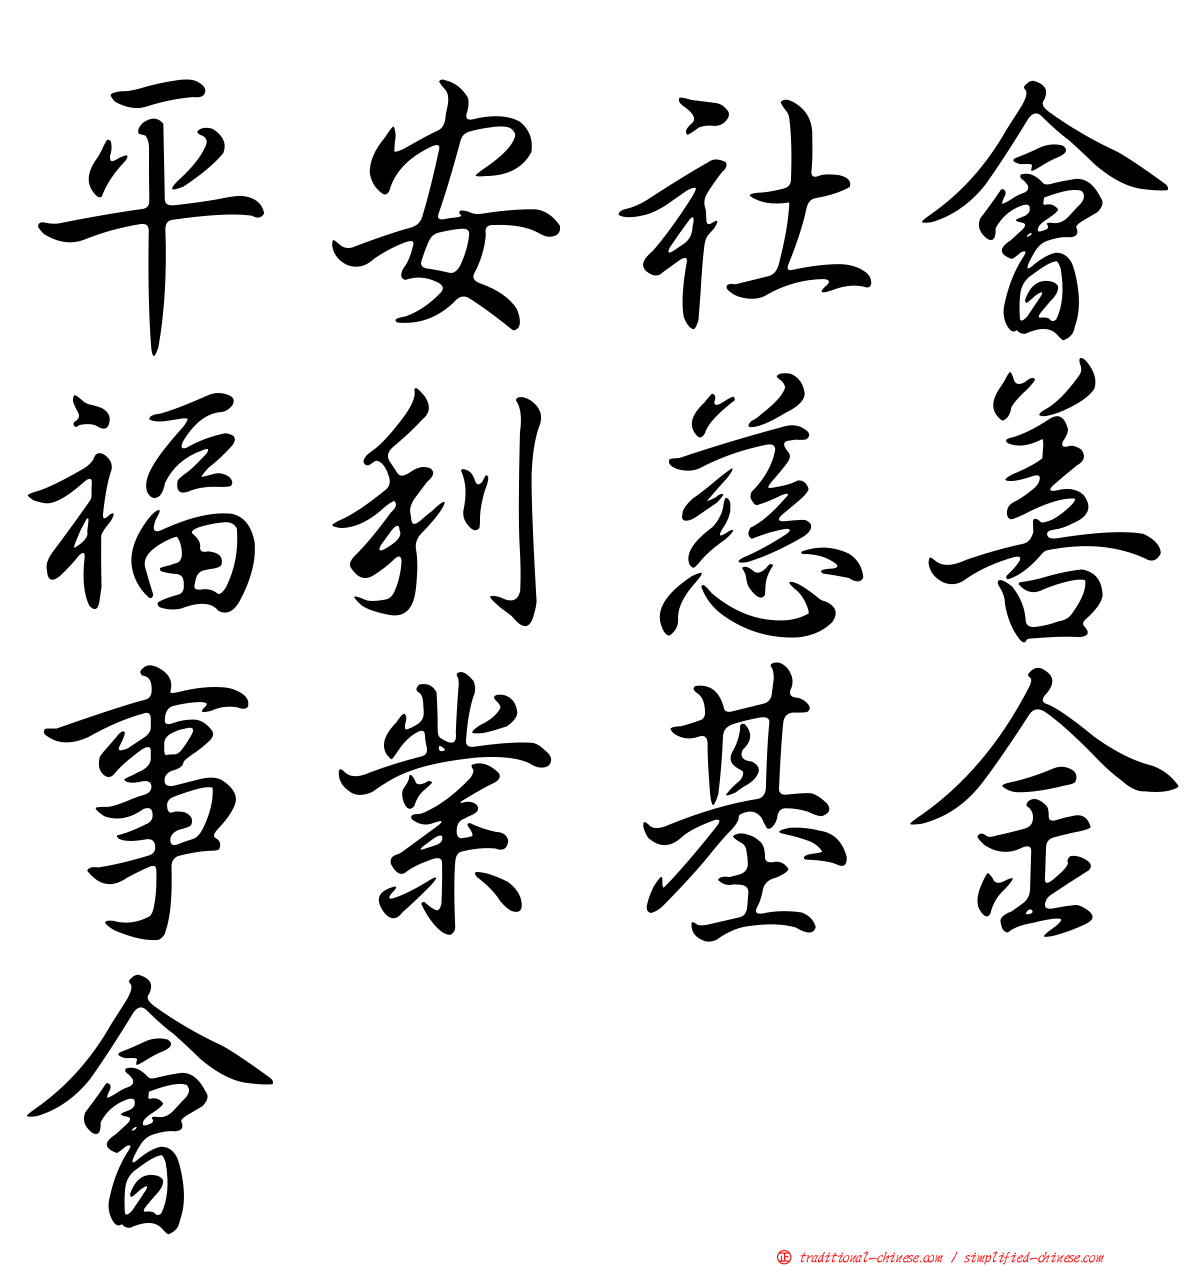 平安社會
福利慈善
事業基金
會
正 traditional-chinese.com / simplified-chinese.com